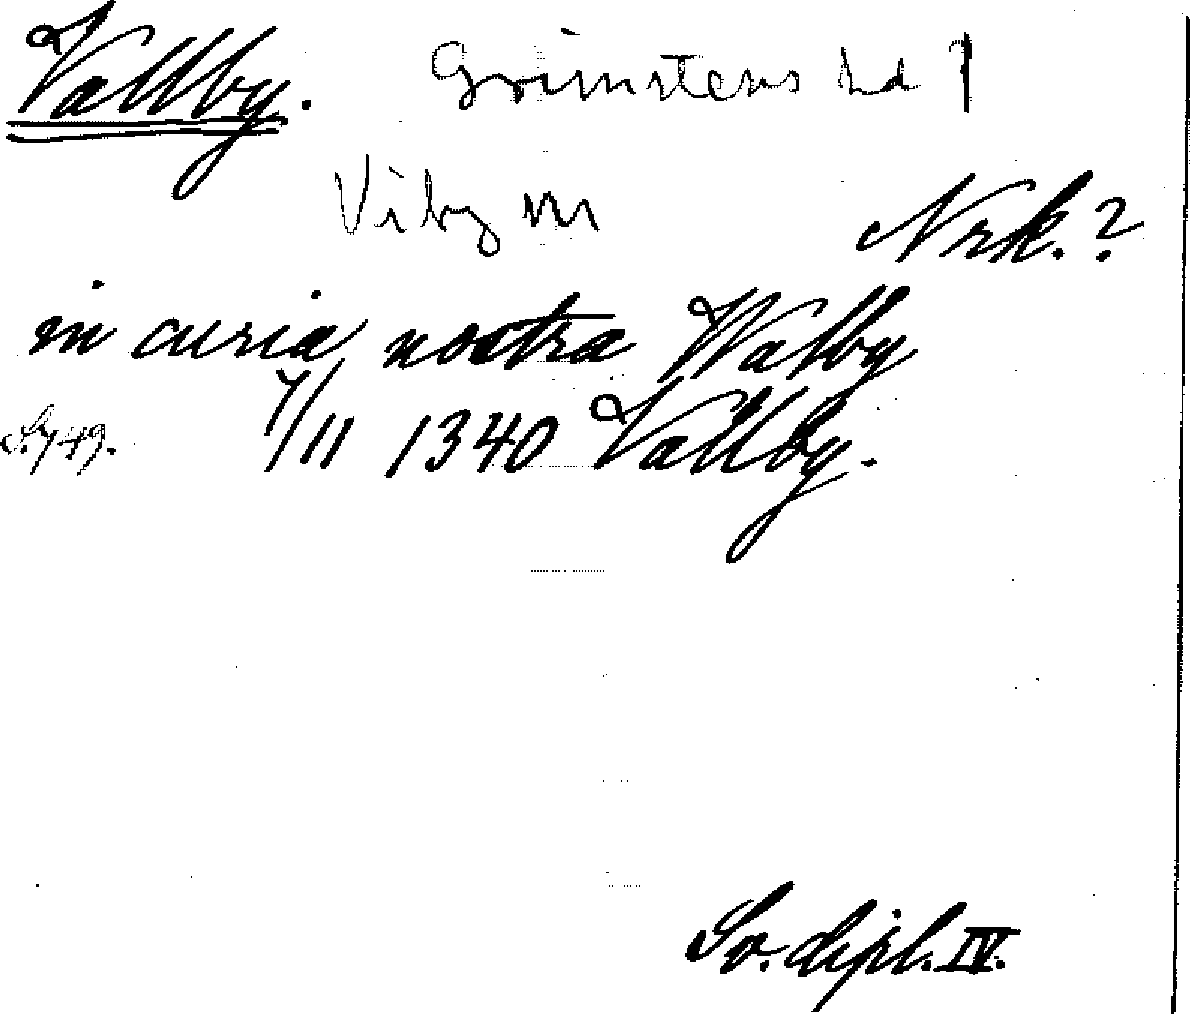 Vallby. Grimstens hd ?
Viby sn
Nrk.?
in curia nostra Walby
S. 749. 7/11 1340 Vallby.
Sv. dipl. IV.